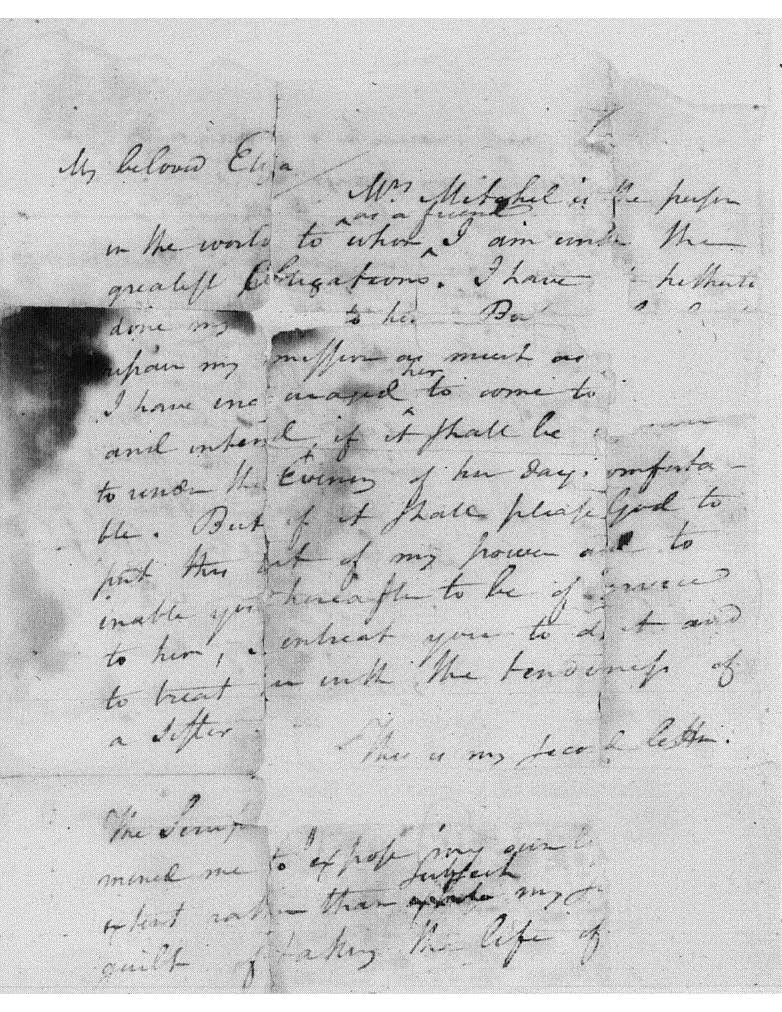 My beloved Eliza
Mrs Mitchel is the person
as a friend
in the world to whom I am under the
greatest Obligations. I have hitherto
done my to her. Bu
repair my mission as much as
her
I have encouraged to come to
and intend, if it shall be
to render the Evening of her days comforta-
ble. But if it shall please God to
put this out of my power and to
inable you hereafter to be of service
to her, entreat you to do it and
to treat with the tenderness of
a Sister.
This is my second letter.
The Scrup
mined me to expose my own l
subject
extent rather than my
guilt of taking the life of